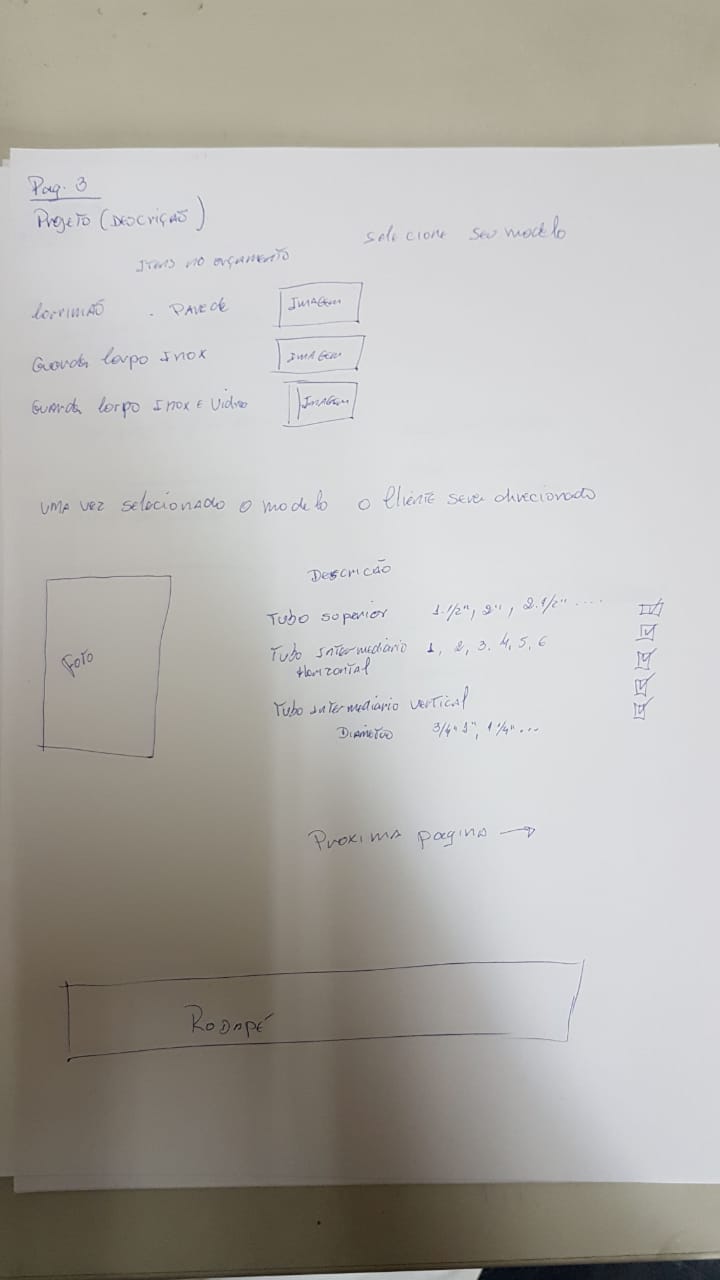 Pag. 3
Projeto (Descrição)
Selecione seu modelo
Itens no orçamento
Corrimão . Parede IMAGEM
Guarda Corpo Inox IMAGEM
Guarda Corpo Inox e Vidro IMAGEM
UMA VEZ selecionado o modelo o Cliente sera direcionado
Descricão
FOTO
Tubo superior 1.1/2", 2", 2.1/2" ....
Tubo Intermediário 1, 2, 3, 4, 5, 6
Horizontal
Tubo Intermediário vertical
Diâmetro 3/4" 1", 1 1/4" ...
Proxima pagina →
RODAPÉ